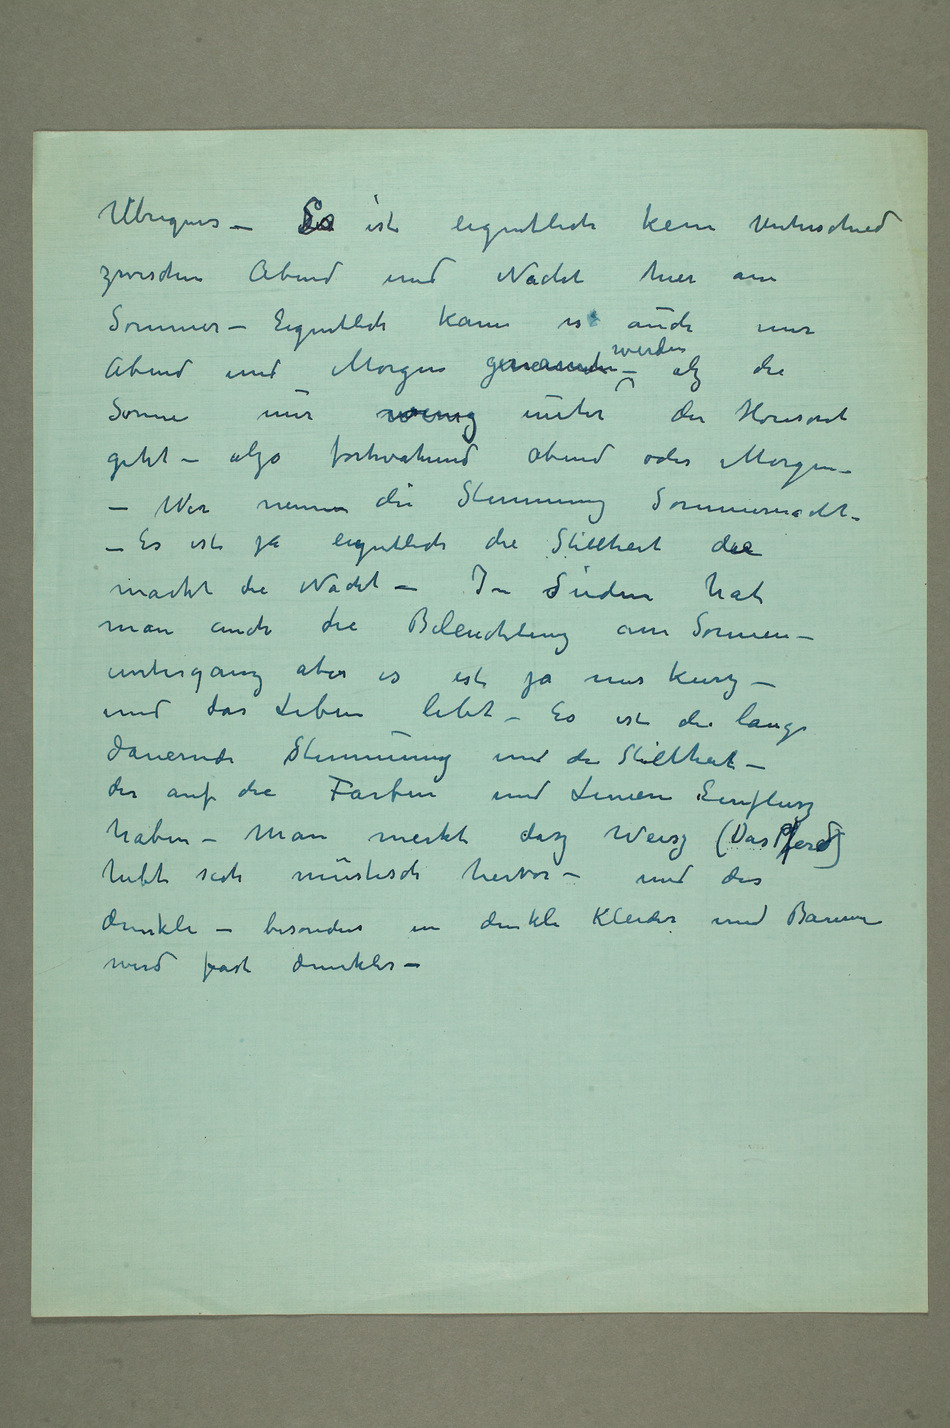 Übrigens – Es ist eigentlich kein Unterschied
zwischen Abend und Nacht hier am
Sommer – Eigentlich kann es auch nur
Abend und Morgen genannt werden – als die
Sonne nur wenig unter der Horisont
geht – also fortwährend abend oder Morgen –
– Wir nennen die Stimmung Sommernacht –
– Es ist ja eigentlich die Stillheit die
macht die Nacht – In Süden hat
man auch die Beleuchtung am Sonnen–
untergang aber es ist ja nur kurz –
und das Leben lebt – Es ist die lange
dauernde Stimmung und die Stillheit –
der auf die Farben und Linien Einflusz
haben – Man merkt dasz Weisz (Das Pferd)
hebt sich müstisch hervor – und das
dunkle – besonders in dunkle Kleider und Baume
wird fast dunkler –